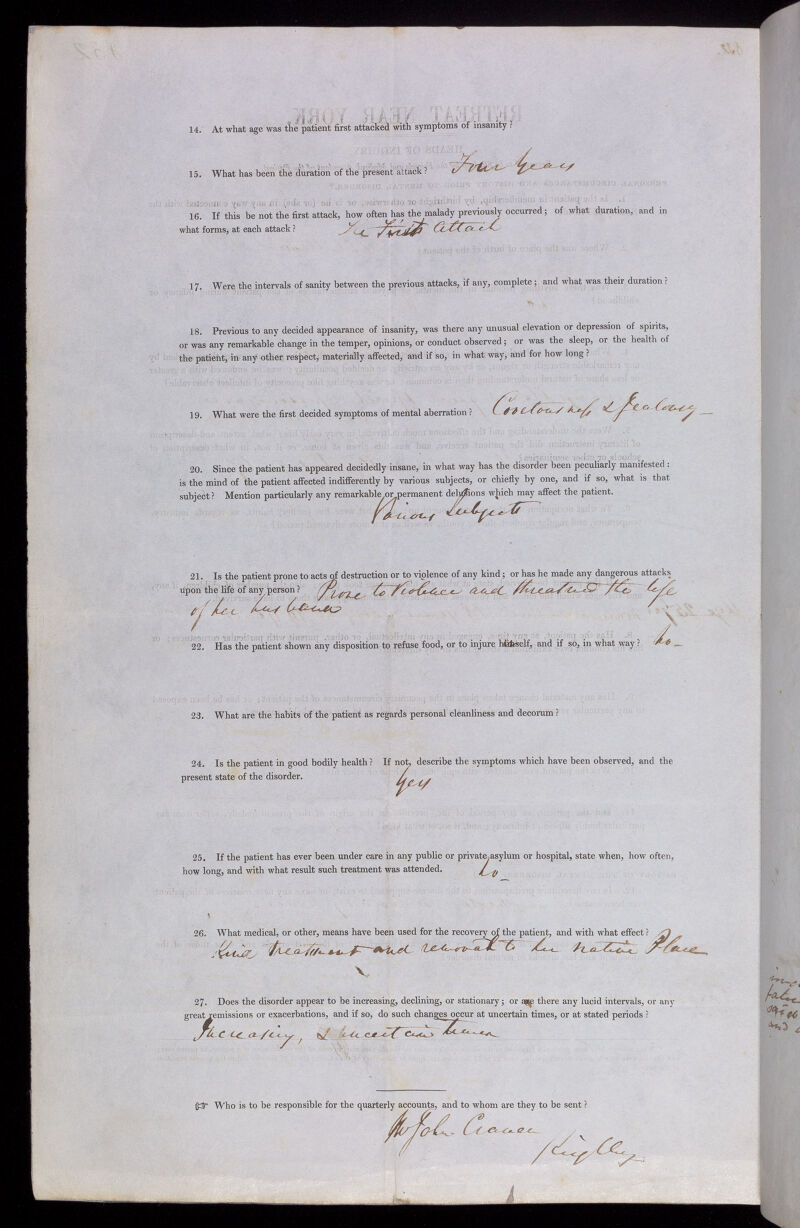 14. At what age was the patient first attacked with symptoms of insanity?
15. What has been the duration of the present attack? Four Years
16. If this be not the first attack, how often has the malady previously occurred; of what duration, and in
what forms, at each attack? The First Attack
17. Were the intervals of sanity between the previous attacks, if any, complete; and what was their duration?
18. Previous to any decided appearance of insanity, was there any unusual elevation or depression of spirits,
or was any remarkable change in the temper, opinions, or conduct observed; or was the sleep, or the health of
the patient, in any other respect, materially affected, and if so, in what way, and for how long?
19. What were the first decided symptoms of mental aberration? Covetousness & Jealousy
20. Since the patient has appeared decidedly insane, in what way has the disorder been peculiarly manifested:
is the mind of the patient affected indifferently by various subjects, or chiefly by one, and if so, what is that
subject? Mention particularly any remarkable or permanent delusions which may affect the patient.
Various Subjects
21. Is the patient prone to acts of destruction or to violence of any kind; or has he made any dangerous attacks
upon the life of any person? Prone to Violence and threatened the life
of her husband
22. Has the patient shown any disposition to refuse food, or to injure himself, and if so, in what way? No
23. What are the habits of the patient as regards personal cleanliness and decorum?
24. Is the patient in good bodily health? If not, describe the symptoms which have been observed, and the
present state of the disorder.
Yes
25. If the patient has ever been under care in any public or private asylum or hospital, state when, how often,
how long, and with what result such treatment was attended. No
26. What medical, or other, means have been used for the recovery of the patient, and with what effect?
Kind treatment and removal to her native Place
27. Does the disorder appear to be increasing, declining, or stationary; or are there any lucid intervals, or any
great remissions or exacerbations, and if so, do such changes occur at uncertain times, or at stated periods?
Increasing, & uncertain times
☞ Who is to be responsible for the quarterly accounts, and to whom are they to be sent?
Mr John